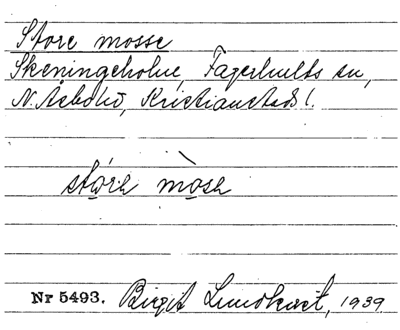 Store mosse
Skeningeholm, Fagerhults sn,
N. Åsbo hd, Kristianstads l.
stōrə mōsə
Nr 5493. Birgit Lundkvist, 1939